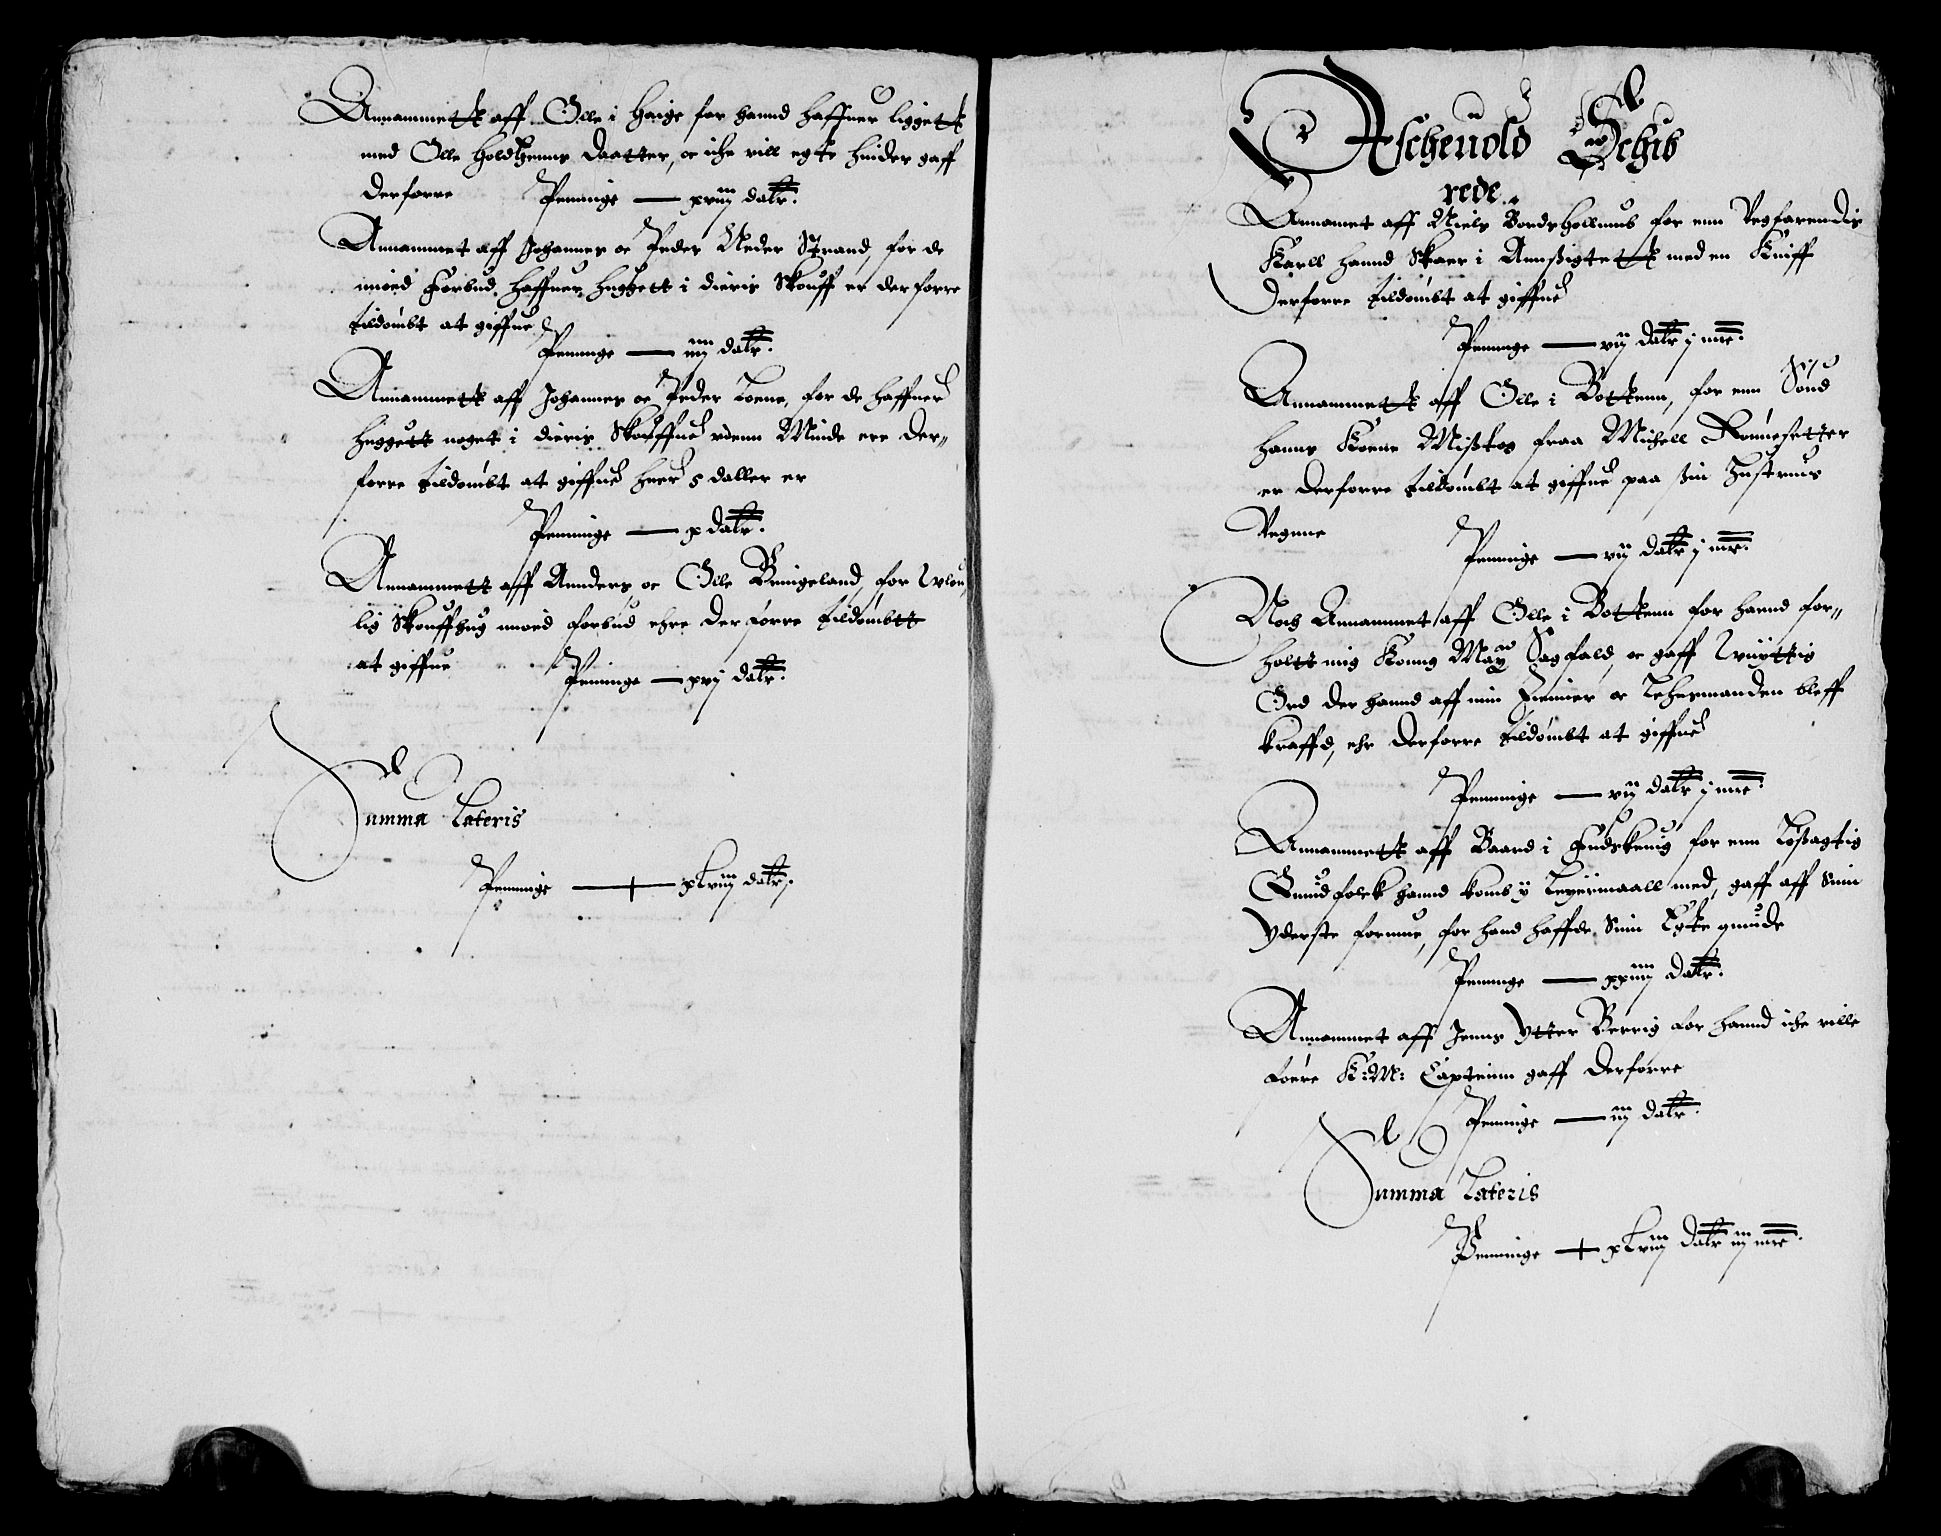 Annammett aff Olle i Haige for hannd haffuer liggett
med Olle Holdhenns Daatter, oc iche vill egte hinder gaff
derforre Penninge — xviij dalr.
Annammet aff Johannes oc Peder Neder Strand, for de
imoed Forbud haffuer huggett i dieris Skouff er derforre
tildömbt at giffue
Penninge — iiij dalr.
Annammett aff Johannes oc Peder Loene, for de haffuer
huggett noget i dieris Skouffue vdenn Minde ere der„
forre tildömbt at giffue huer 5 daller er
Penninge — x dalr.
Annammett aff Annders oc Olle Bringeland, for Wlou„
lig Skouffhug imoed forbud ehre derforre tildömbtt
at giffue Penninge — xvj dalr.
Summa Lateris
Penninge — xlviij dalr.
Ascheuold Schib
rede.
Annamet aff Niels Bordsholmub for enn Vegfarendis
Karll hannd Skaer i Annsigtett med en Kniff
derforre tildömbt at giffue
Penninge — vij dalr j mrc.
Annammett aff Olle i Bottenn, for enn Söud
hanns Koene Mistog fraa Michell Rönnesetter
er derforre tildömbt at giffue paa sin Hustrues
Vegnne Penninge — vij dalr j mrc.
Noch Annammet aff Olle i Bottenn for hannd for„
holtt mig Konng Maytz Sagfald, oc gaff Wnyttig
Ord der hannd aff min Thienner oc Lehnsmanden bleff
kraffd, ehr derforre tildömbt at giffue
Penninge — vij dalr j mrc.
Annammett aff Baard i Endskouig for enn Lösagtig
Quindfolck hannd komb y Leyermaall med, gaff aff Sinn
Yderste formue, for hand haffde Sinn Egte quinde
Penninge — xxiiij dalr.
Annammet aff Jenns Ytter Berrig for hannd iche ville
foere K: M: Capteinn gaff derforre
Penninge — iij dalr.
Summa Lateris
Penninge — xlviij dalr iij mrc.